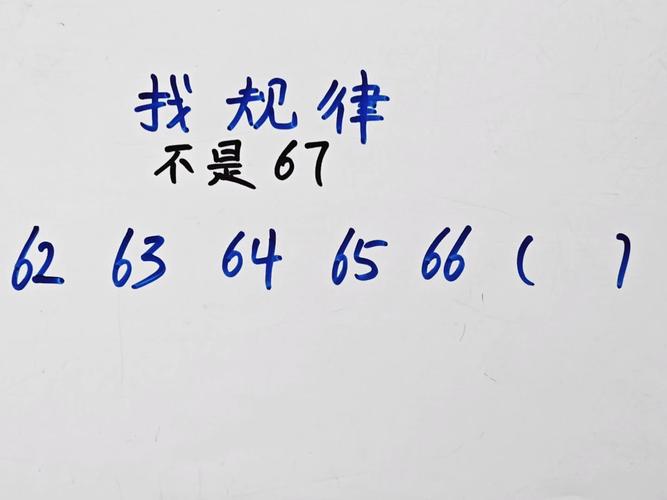 找规律
不是67
62 63 64 65 66 ( )